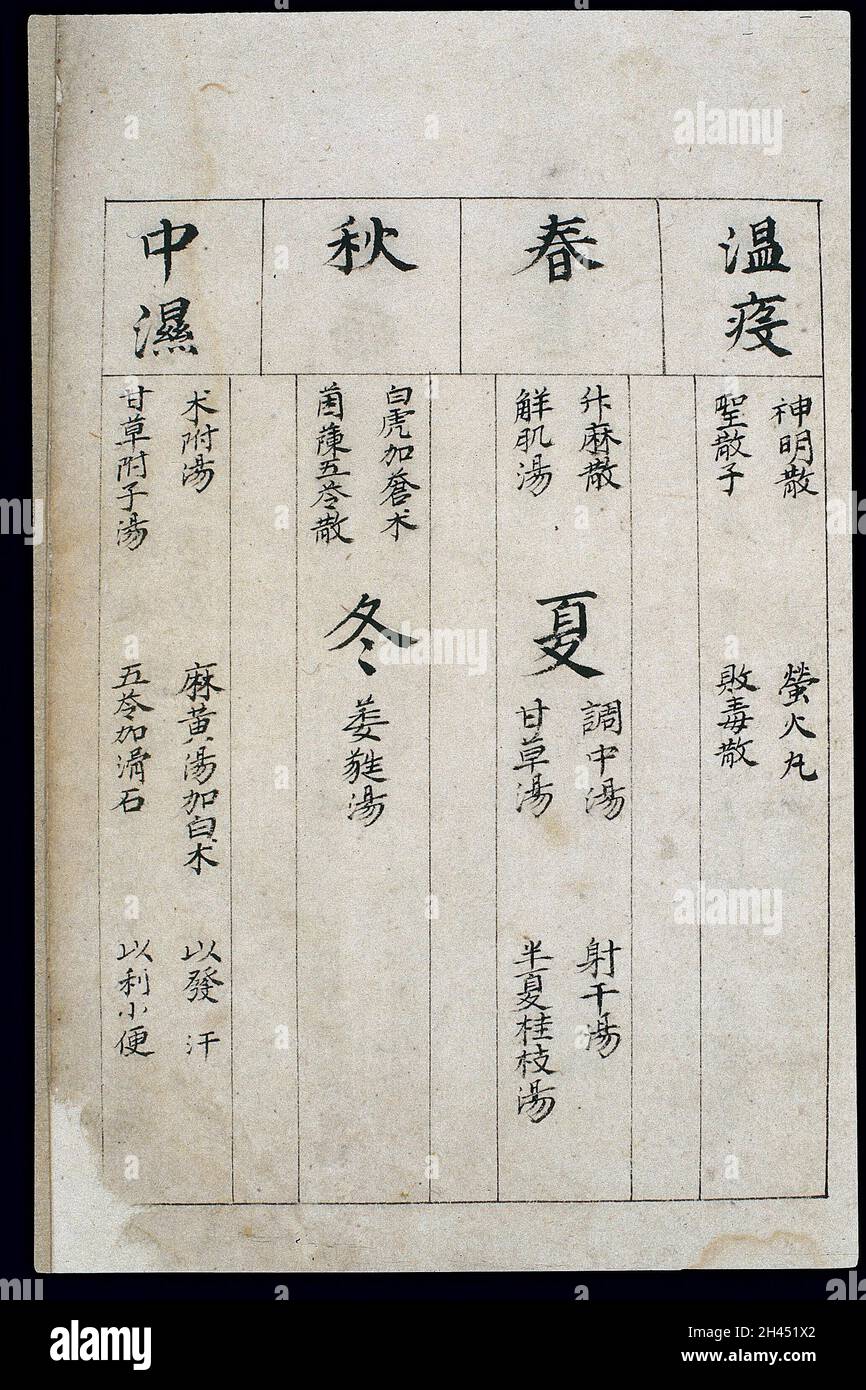 温疫
神明散
螢火丸
聖散子
敗毒散
春
升麻散
解肌湯
夏
調中湯
射干湯
甘草湯
半夏桂枝湯
秋
白虎加蒼朮
茵蔯五苓散
冬
萎蕤湯
中濕
朮附湯
麻黃湯加白朮
以發汗
甘草附子湯
五苓加滑石
以利小便
alamy
Image ID: 2H451X2
www.alamy.com